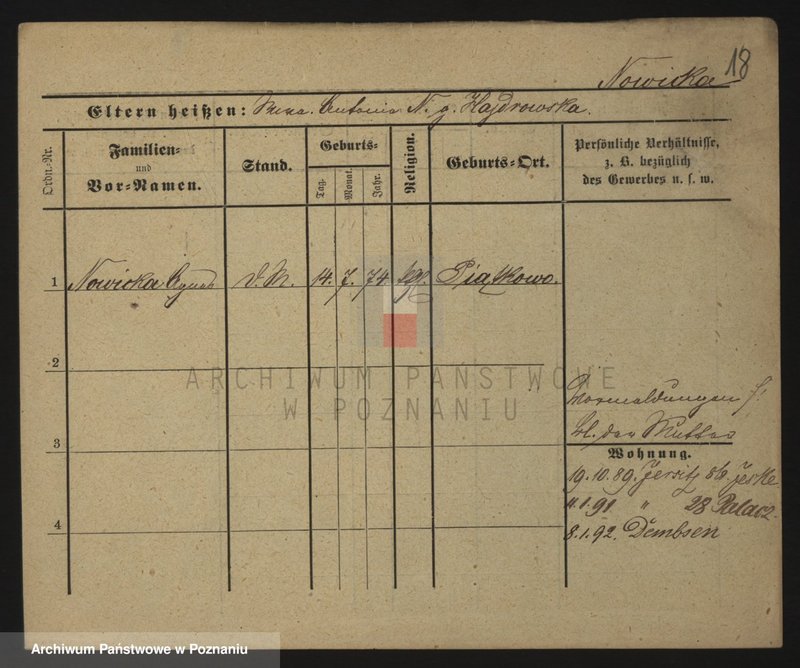 18
Nowicka
Eltern heißen: Antonia N. g. Hajdrowska.
Ordn.-Nr.
Familien-
und
Vor-Namen.
Stand.
Geburts-
Tag.
Monat.
Jahr.
Religion.
Geburts-Ort.
Persönliche Verhältnisse,
z. B. bezüglich
des Gewerbes u. s. w.
1 Nowicka Agnes 14. 7. 74 Piątkowo.
2
ARCHIWUM PAŃSTWOWE
W POZNANIU
Vormeldungen f.
Bl. der Mutter
3
Wohnung.
19.10.89. Jersitz 86 Jeske
4.1.91 " 28 Palacz
4
8.1.92. Dembsen
Archiwum Państwowe w Poznaniu